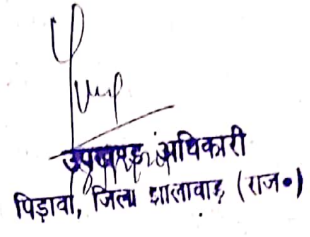 उपखण्ड अधिकारी
पिड़ावा, जिला झालावाड़ (राज॰)